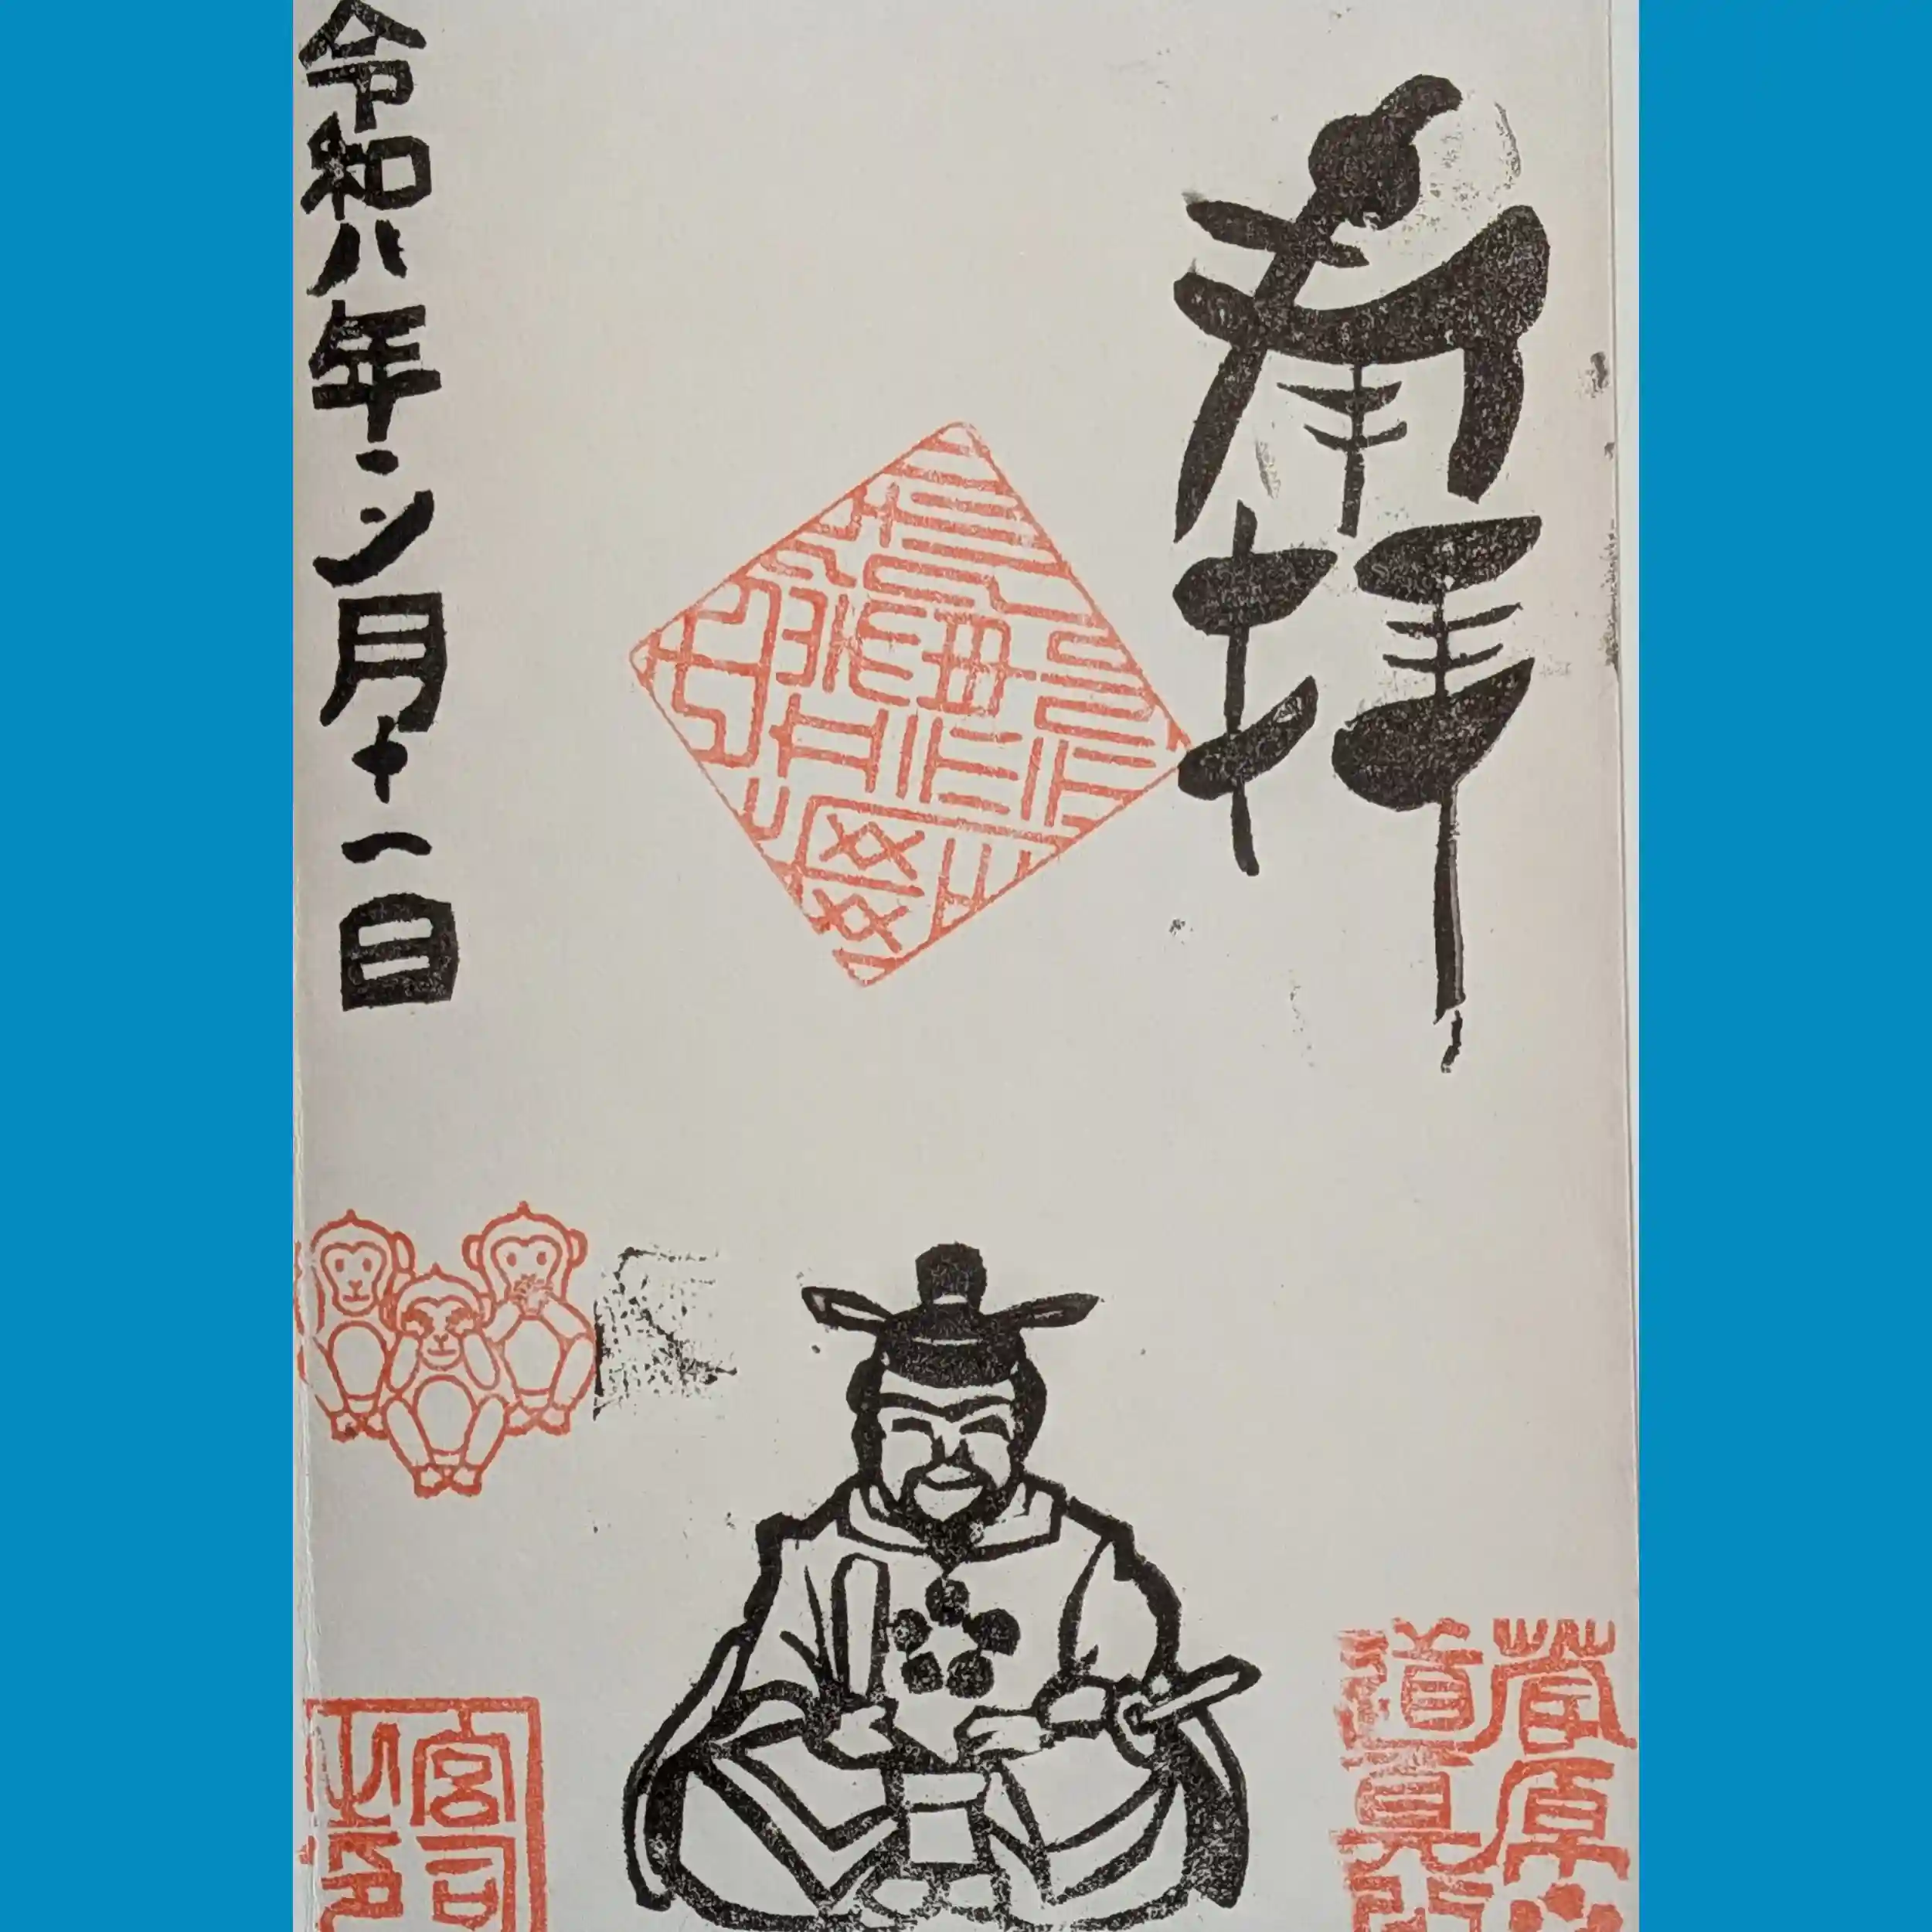 奉拝
菅原
道真公
令和八年三月十一日
宮司
之印